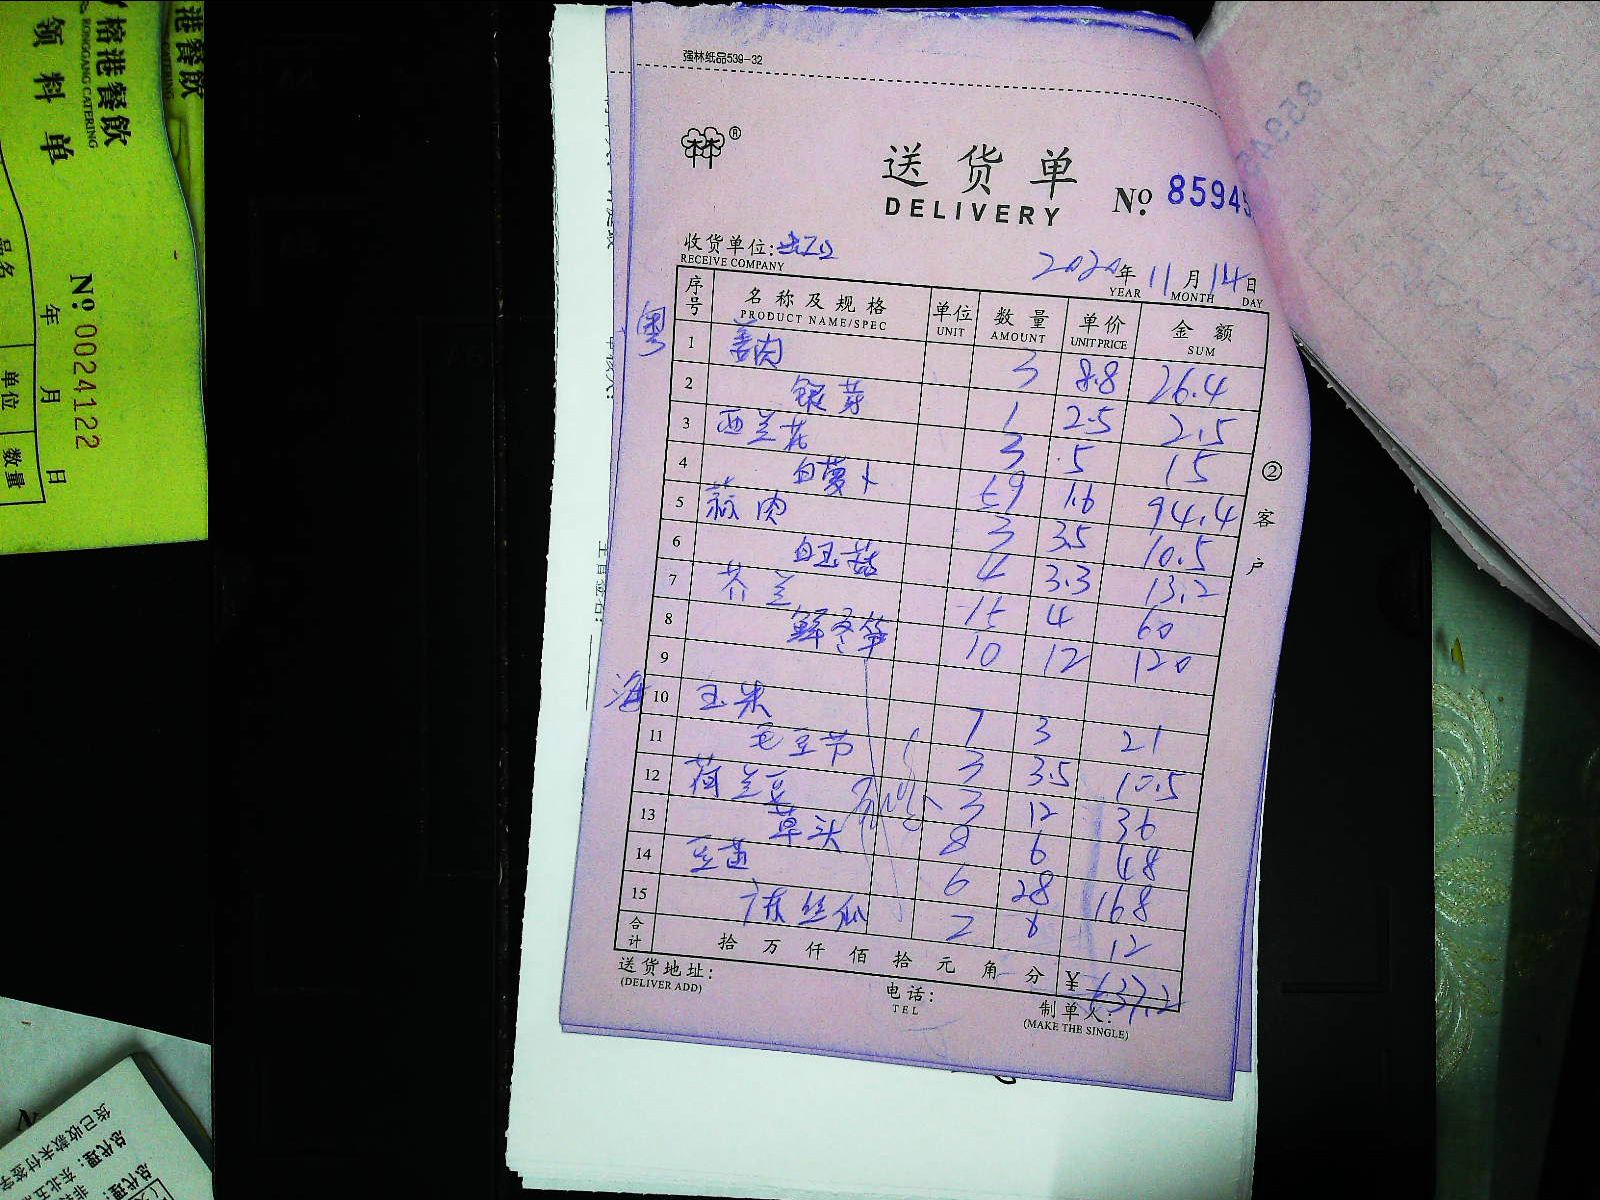 强林纸品539-32
®
送货单
DELIVERY
No. 85945
收货单位:
RECEIVE COMPANY
2020年 11月 14日
YEAR MONTH DAY
序号 名称及规格 单位 数量 单价 金额
PRODUCT NAME/SPEC UNIT AMOUNT UNIT PRICE SUM
粤
1 姜肉 3 8.8 26.4
2 银芽 1 2.5 2.5
3 西兰花 3 5 15
4 白萝卜 59 1.6 94.4
5 蒜肉 3 3.5 10.5
6 白玉菇 4 3.3 13.2
7 芥兰 15 4 60
8 鲜冬笋 10 12 120
9
海
10 玉米 7 3 21
11 毛豆节 3 3.5 10.5
12 荷兰豆 3 12 36
13 草头 8 6 48
14 豆苗 6 28 168
15 丝瓜 2 6 12
合计 拾 万 仟 佰 拾 元 角 分 ¥ 637.2
送货地址:
(DELIVER ADD)
电话:
TEL
制单人:
(MAKE THE SINGLE)
② 客户
港餐飲
榕港餐飲
RONGGANG CATERING
领料单
No. 0024122
年 月 日
品名 单位 数量
货已收款未付签字
总代理:
总代理: 东北五